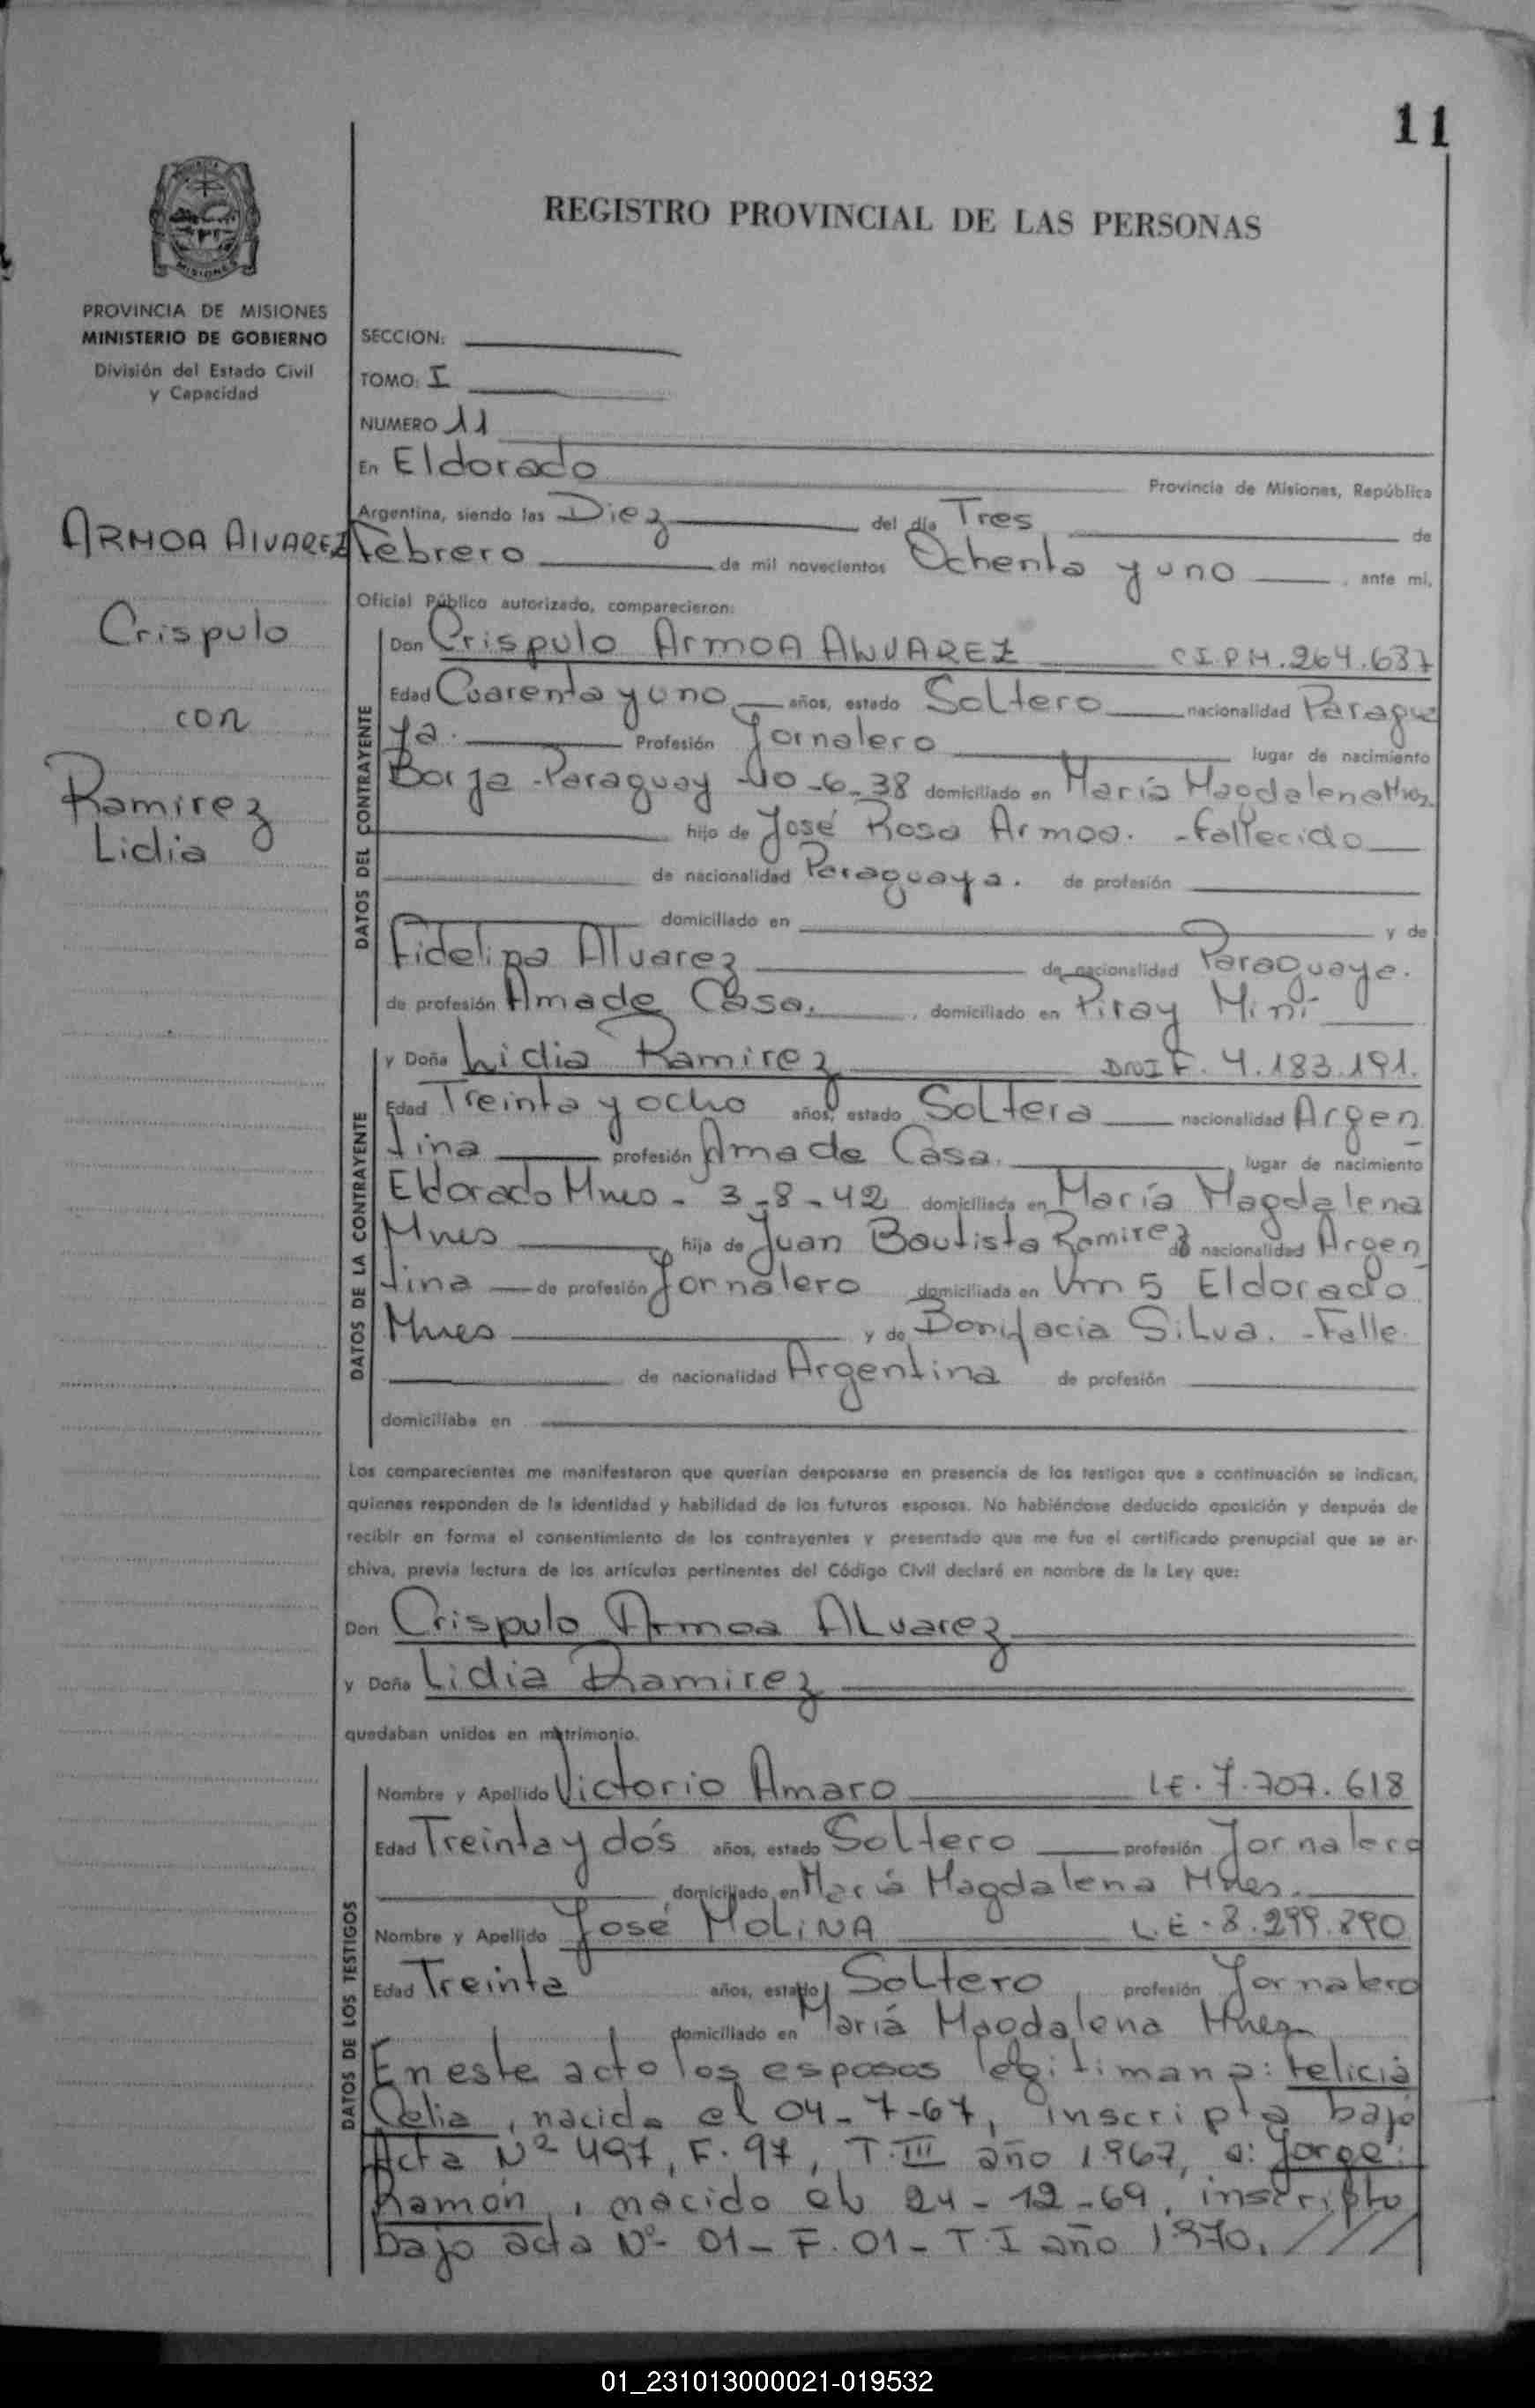 11
REGISTRO PROVINCIAL DE LAS PERSONAS
PROVINCIA DE MISIONES
MINISTERIO DE GOBIERNO
División del Estado Civil
y Capacidad
ARMOA AlVAREZ
Crispulo
con
Ramirez
Lidia
SECCION:
TOMO: I
NUMERO 11
En Eldorado Provincia de Misiones, República
Argentina, siendo las Diez del día Tres de
Febrero de mil novecientos Ochenta y uno, ante mi,
Oficial Público autorizado, comparecieron:
DATOS DEL CONTRAYENTE
Don Crispulo ArmoA AlVAREZ C.I.P.M. 264.637
Edad Cuarenta y uno años, estado Soltero nacionalidad Paragua
ya. Profesión Jornalero lugar de nacimiento
Borja - Paraguay - 10-6-38 domiciliado en María Magdalena
hijo de José Rosa Armoa. - Fallecido
de nacionalidad Paraguaya. de profesión
domiciliado en y de
Fidelina Alvarez de nacionalidad Paraguaya.
de profesión Ama de Casa. domiciliado en Piray Mini
DATOS DE LA CONTRAYENTE
y Doña Lidia Ramirez DNI F. 4.183.191.
Edad Treinta y ocho años, estado Soltera nacionalidad Argen
tina profesión Ama de Casa. lugar de nacimiento
Eldorado Mnes - 3-8-42 domiciliada en María Magdalena
Mnes hija de Juan Bautista Ramirez de nacionalidad Argen
tina de profesión Jornalero domiciliada en Km 5 Eldorado
Mnes y de Bonifacia Silva. - Falle
de nacionalidad Argentina de profesión
domiciliaba en
Los comparecientes me manifestaron que querían desposarse en presencia de los testigos que a continuación se indican,
quienes responden de la identidad y habilidad de los futuros esposos. No habiéndose deducido oposición y después de
recibir en forma el consentimiento de los contrayentes y presentado que me fue el certificado prenupcial que se ar-
chiva, previa lectura de los artículos pertinentes del Código Civil declaré en nombre de la Ley que:
Don Crispulo Armoa Alvarez
y Doña Lidia Ramirez
quedaban unidos en matrimonio.
DATOS DE LOS TESTIGOS
Nombre y Apellido Victorio Amaro L.E. 7.707.618
Edad Treinta y dos años, estado Soltero profesión Jornalero
domiciliado en María Magdalena Mnes.
Nombre y Apellido José MOLINA L.E. 8.299.890
Edad Treinta años, estado Soltero profesión Jornalero
domiciliado en María Magdalena Mnes
En este acto los esposos legitiman a: Felicia
Celia, nacida el 04-7-67, inscripta bajo
Acta Nº 497, F. 97, T. III año 1967, a: Jorge
Ramón, nacido el 24-12-69, inscripto
bajo acta Nº 01 - F. 01 - T. I año 1970, ///
01_231013000021-019532